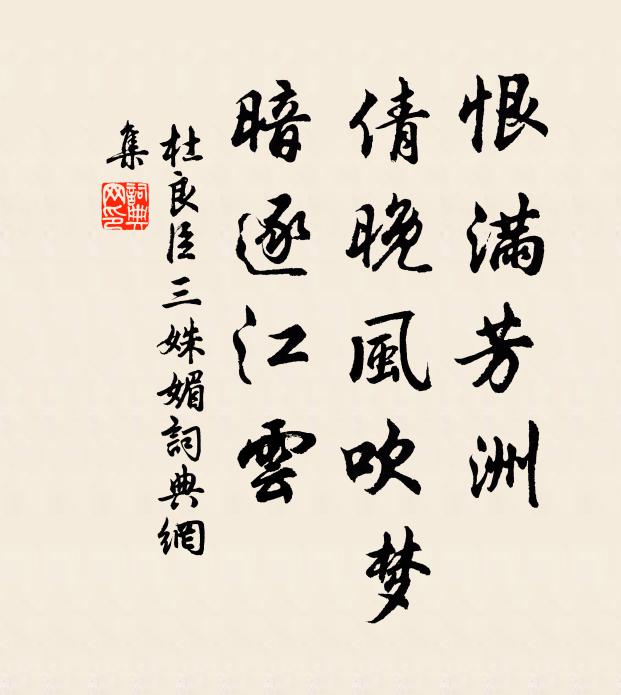 恨滿芳洲
倩晚風吹梦
暗逐江雲
杜良臣三姝媚詞典網
集
詞典
网印